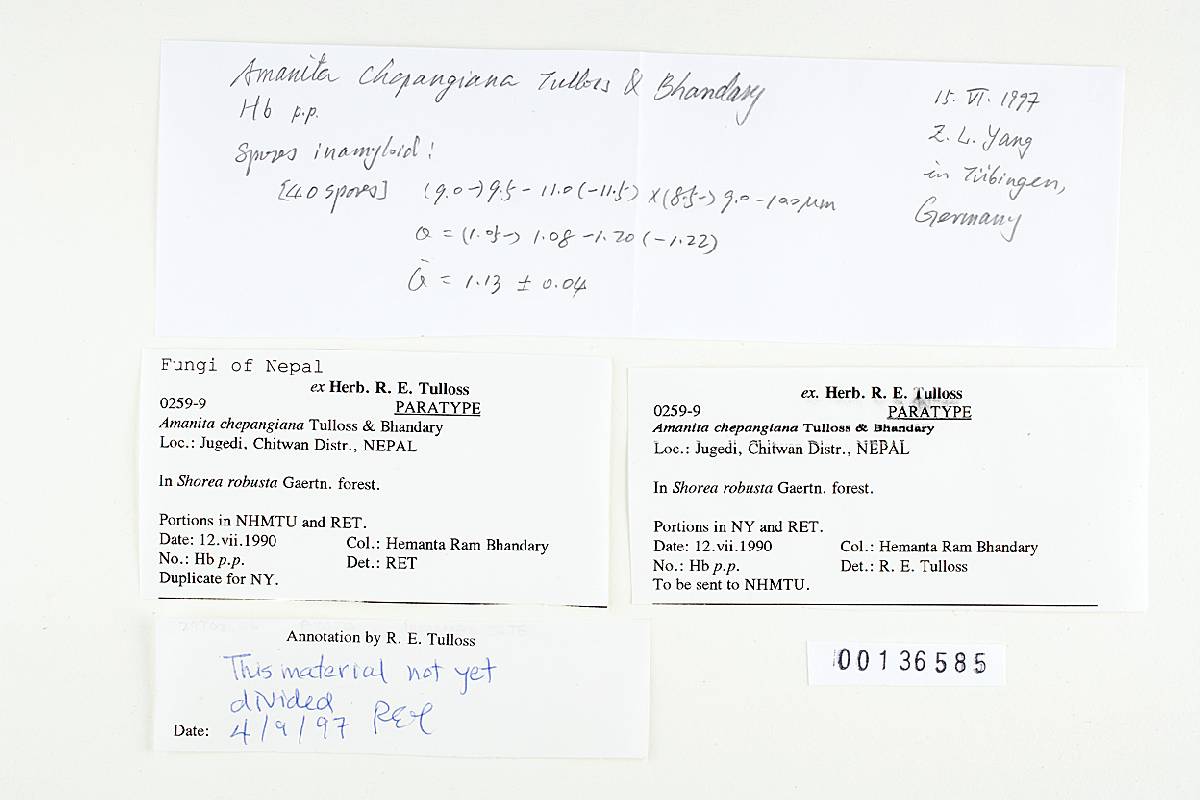 Amanita chepangiana Tulloss & Bhandary
Hb p.p.
Spores inamyloid!
[40 spores] (9.0-) 9.5 - 11.0 (-11.5) x (8.5-) 9.0 - 10.0 µm
Q = (1.05-) 1.08 - 1.20 (-1.22)
Q̄ = 1.13 ± 0.04
15. VI. 1997
Z. L. Yang
in Tübingen,
Germany
Fungi of Nepal
ex Herb. R. E. Tulloss
0259-9 PARATYPE
Amanita chepangiana Tulloss & Bhandary
Loc.: Jugedi, Chitwan Distr., NEPAL
In Shorea robusta Gaertn. forest.
Portions in NHMTU and RET.
Date: 12.vii.1990 Col.: Hemanta Ram Bhandary
No.: Hb p.p. Det.: RET
Duplicate for NY.
ex. Herb. R. E. Tulloss
0259-9 PARATYPE
Amanita chepangiana Tulloss & Bhandary
Loc.: Jugedi, Chitwan Distr., NEPAL
In Shorea robusta Gaertn. forest.
Portions in NY and RET.
Date: 12.vii.1990 Col.: Hemanta Ram Bhandary
No.: Hb p.p. Det.: R. E. Tulloss
To be sent to NHMTU.
Annotation by R. E. Tulloss
This material not yet
divided
Date: 4/9/97 RET
00136585